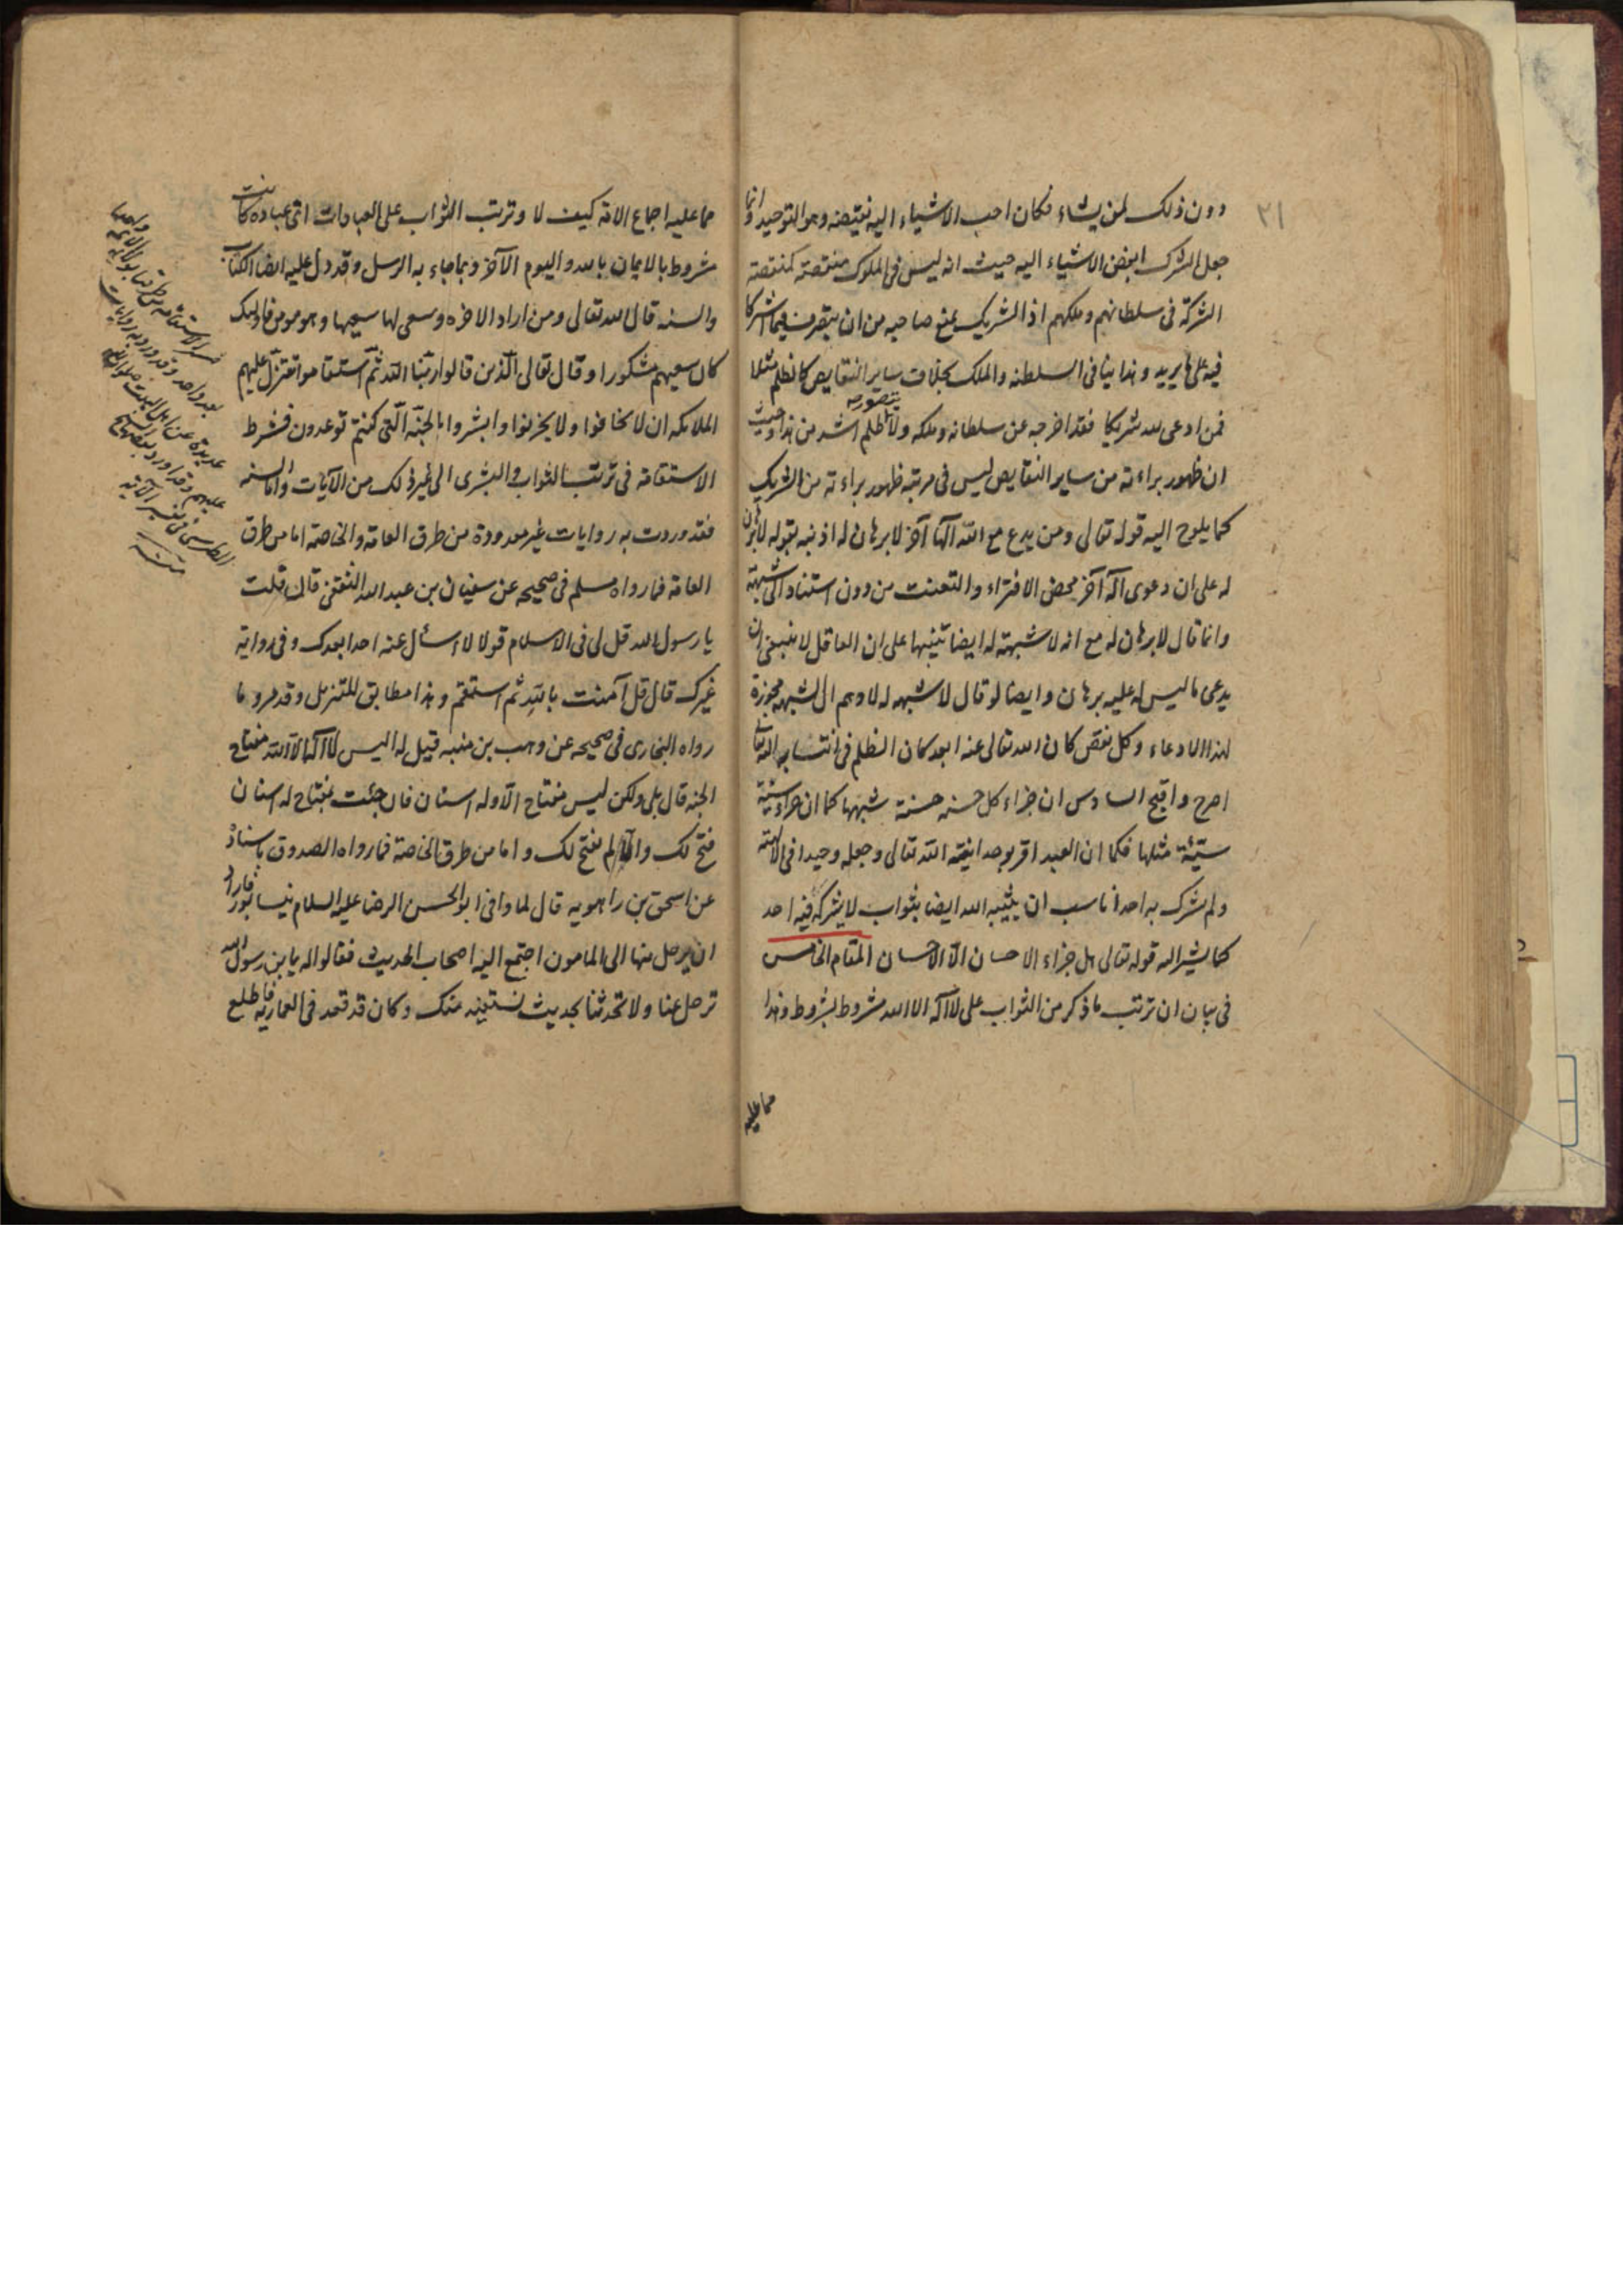 ٢١
دون ذلك لمن يشاء فكان احب الاشياء اليه نقيضه وهو التوحيد وانما
جعل الشرك ابغض الاشياء اليه حيث انه ليس في الملوك منقصة كمنقصة
الشركة في سلطانهم وملكهم اذ الشريك يمنع صاحبه من ان يتصرف فيما اشتركا
فيه على ما يريد وهذا ينافى السلطنه والملك بخلاف ساير النقايص كالظلم مثلا
فمن ادعى لله شريكا فقد اخرجه عن سلطانه وملكه ولا يتصور ظلم اشد من هذا وحيث
ان ظهور براءته من ساير النقايص ليس في مرتبة ظهور براءته من الشريك
كما يلوح اليه قوله تعالى ومن يدع مع الله آلها آخر لا برهان له اذ نبه بقوله لا برهان
له على ان دعوى آله آخر محض الافتراء والتعنت من دون استناد الى شبهة
وانما قال لا برهان له مع انه لا شبهة له ايضا تنبيها على ان العاقل لا ينبغي ان
يدعى ما ليس له عليه برهان وايضا لو قال لا شبهه له لاوهم ان الشبهه مجوزة
لهذا الادعاء وكل نقص كان الله تعالى عنه ابعد كان الظلم في انتسابه اليه تعالى
اصرح واقبح السادس ان جزاء كل حسنه حسنة شبهها كما ان جزاء سيئة
سيّئة مثلها فكما ان العبد اقر بوحدانية الله تعالى وجعله وحيدا في الالهية
ولم يشرك به احدا ناسب ان يثيبه الله ايضا بثواب لا يشركه فيه احد
كما يشير اليه قوله تعالى هل جزاء الاحسان الّا الاحسان المقام الخامس
في بيان ان ترتب ما ذكر من الثواب على لا آله الا الله مشروط بشروط وهذا
مما عليه
مما عليه اجماع الامة كيف لا وترتب الثواب على العبادات اىّ عبادة كانت
مشروط بالايمان بالله واليوم الآخر وبما جاء به الرسل وقد دل عليه ايضا الكتاب
والسنه قال الله تعالى ومن اراد الاخره وسعى لها سعيها وهو مومن فاولئك
كان سعيهم مشكورا وقال تعالى الّذين قالوا ربّنا الله ثمّ استقاموا تتنزّل عليهم
الملائكه ان لا تخافوا ولا تحزنوا وابشروا بالجنّه الّتى كنتم توعدون فشرط
الاستقامة في ترتب الثواب والبشرى الى غير ذلك من الآيات واما السنه
فقد وردت به روايات غير معدودة من طرق العامه والخاصة اما من طرق
العامه فما رواه مسلم في صحيحه عن سفيان بن عبد الله الثقفى قال قلت
يا رسول الله قل لى في الاسلام قولا لا اسئل عنه احدا بعدك وفى رواية
غيرك قال قل آمنت بالله ثم استقم وهذا مطابق للتنزيل وقد مر وما
رواه البخارى في صحيحه عن وهب بن منبه قيل له اليس لا آله الّا الله مفتاح
الجنه قال بلى ولكن ليس مفتاح الّا وله اسنان فان جئت بمفتاح له اسنان
فتح لك والّا لم يفتح لك واما من طرق الخاصة فما رواه الصدوق باسناده
عن اسحق بن راهويه قال لما وافى ابو الحسن الرضا عليه السلام نيسابور فاراد
ان يرحل منها الى المامون اجتمع اليه اصحاب الحديث فقالوا له يا بن رسول الله
ترحل عنا ولا تحدثنا بحديث نستفيده منك وكان قد قعد في العماريه فاطلع
فسر الاستقامة
بعد واحد وقد ورد به روايات
عديدة عن اهل البيت صلوات الله
عليهم وقد اورد بعضها
الطبرسى في تفسير الآية
منه